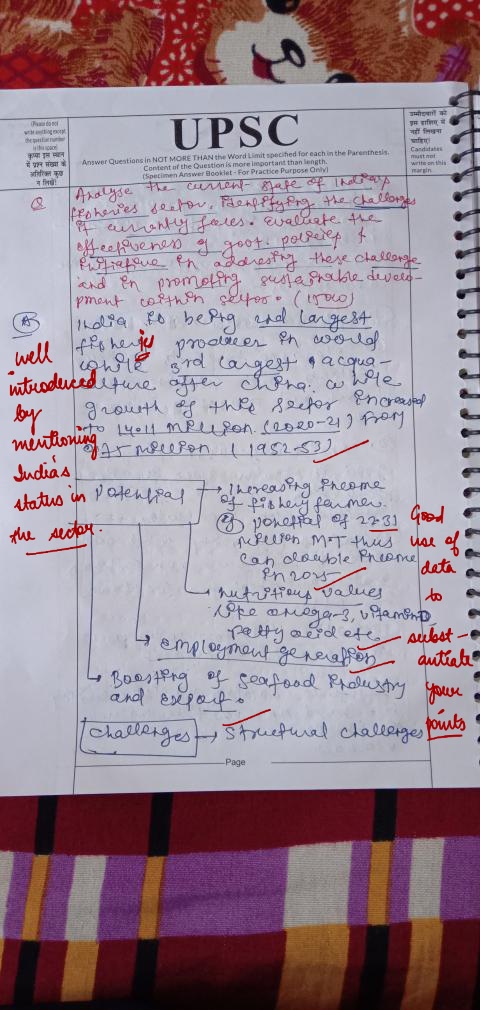 (Please do not
write anything except
the question number
in this space)
कृपया इस स्थान
में प्रश्न संख्या के
अतिरिक्त कुछ
न लिखें।
UPSC
Answer Questions in NOT MORE THAN the Word Limit specified for each in the Parenthesis.
Content of the Question is more important than length.
(Specimen Answer Booklet - For Practice Purpose Only)
उम्मीदवारों को
इस हाशिए में
नहीं लिखना
चाहिए।
Candidates
must not
write on this
margin.
Q Analyse the current state of India's
fisheries sector, identifying the challenges
it currently faces. evaluate the
effectiveness of govt. policies &
initiative in addressing these challenge
and in promoting sustainable develo-
pment within sector. (150w)
A India is being 2nd largest
fishery producer in world
while 3rd largest acqua-
culture after china. while
growth of this sector increased
to 14.11 million (2020-21) from
million (1952-53)
Well
introduced
by
mentioning
India's
status in
the sector.
Potential → Increasing income
of fishery farmer.
of 22.31
million MT thus
can double income
in
→ nutritious values
like omega-3, vitamin D
Fatty acid etc
→ employment generation
→ Boosting of seafood industry
and export.
Good
use of
data
to
subst-
antiate
your
points
Challenges → Structural challenges
Page